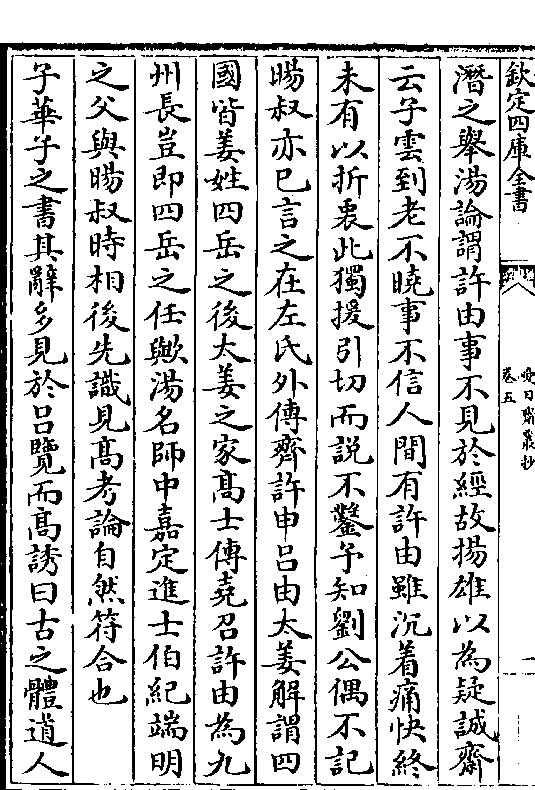 欽定四庫全書
愛日齋叢抄
卷五
一
潛之舉湯論謂許由事不見於經故揚雄以為疑誠齋
云子雲到老不曉事不信人間有許由雖沉着痛快終
未有以折衷此獨援引切而說不鑿予知劉公偶不記
暘叔亦已言之在左氏外傳齊許申呂由太姜解謂四
國皆姜姓四岳之後太姜之家髙士傳堯召許由為九
州長豈即四岳之任歟湯名師中嘉定進士伯紀端明
之父與暘叔時相後先識見髙考論自然符合也
子華子之書其辭多見於呂覽而髙誘曰古之體道人